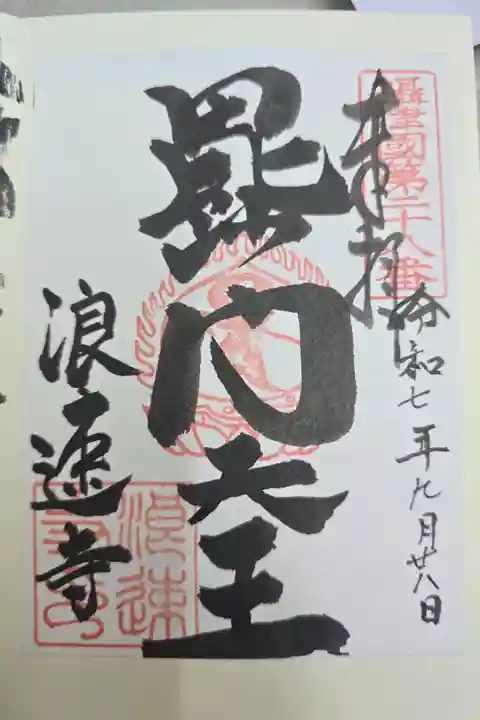 攝津國第二十八番
奉拝
令和七年九月廿八日
毘沙門天王
浪速寺